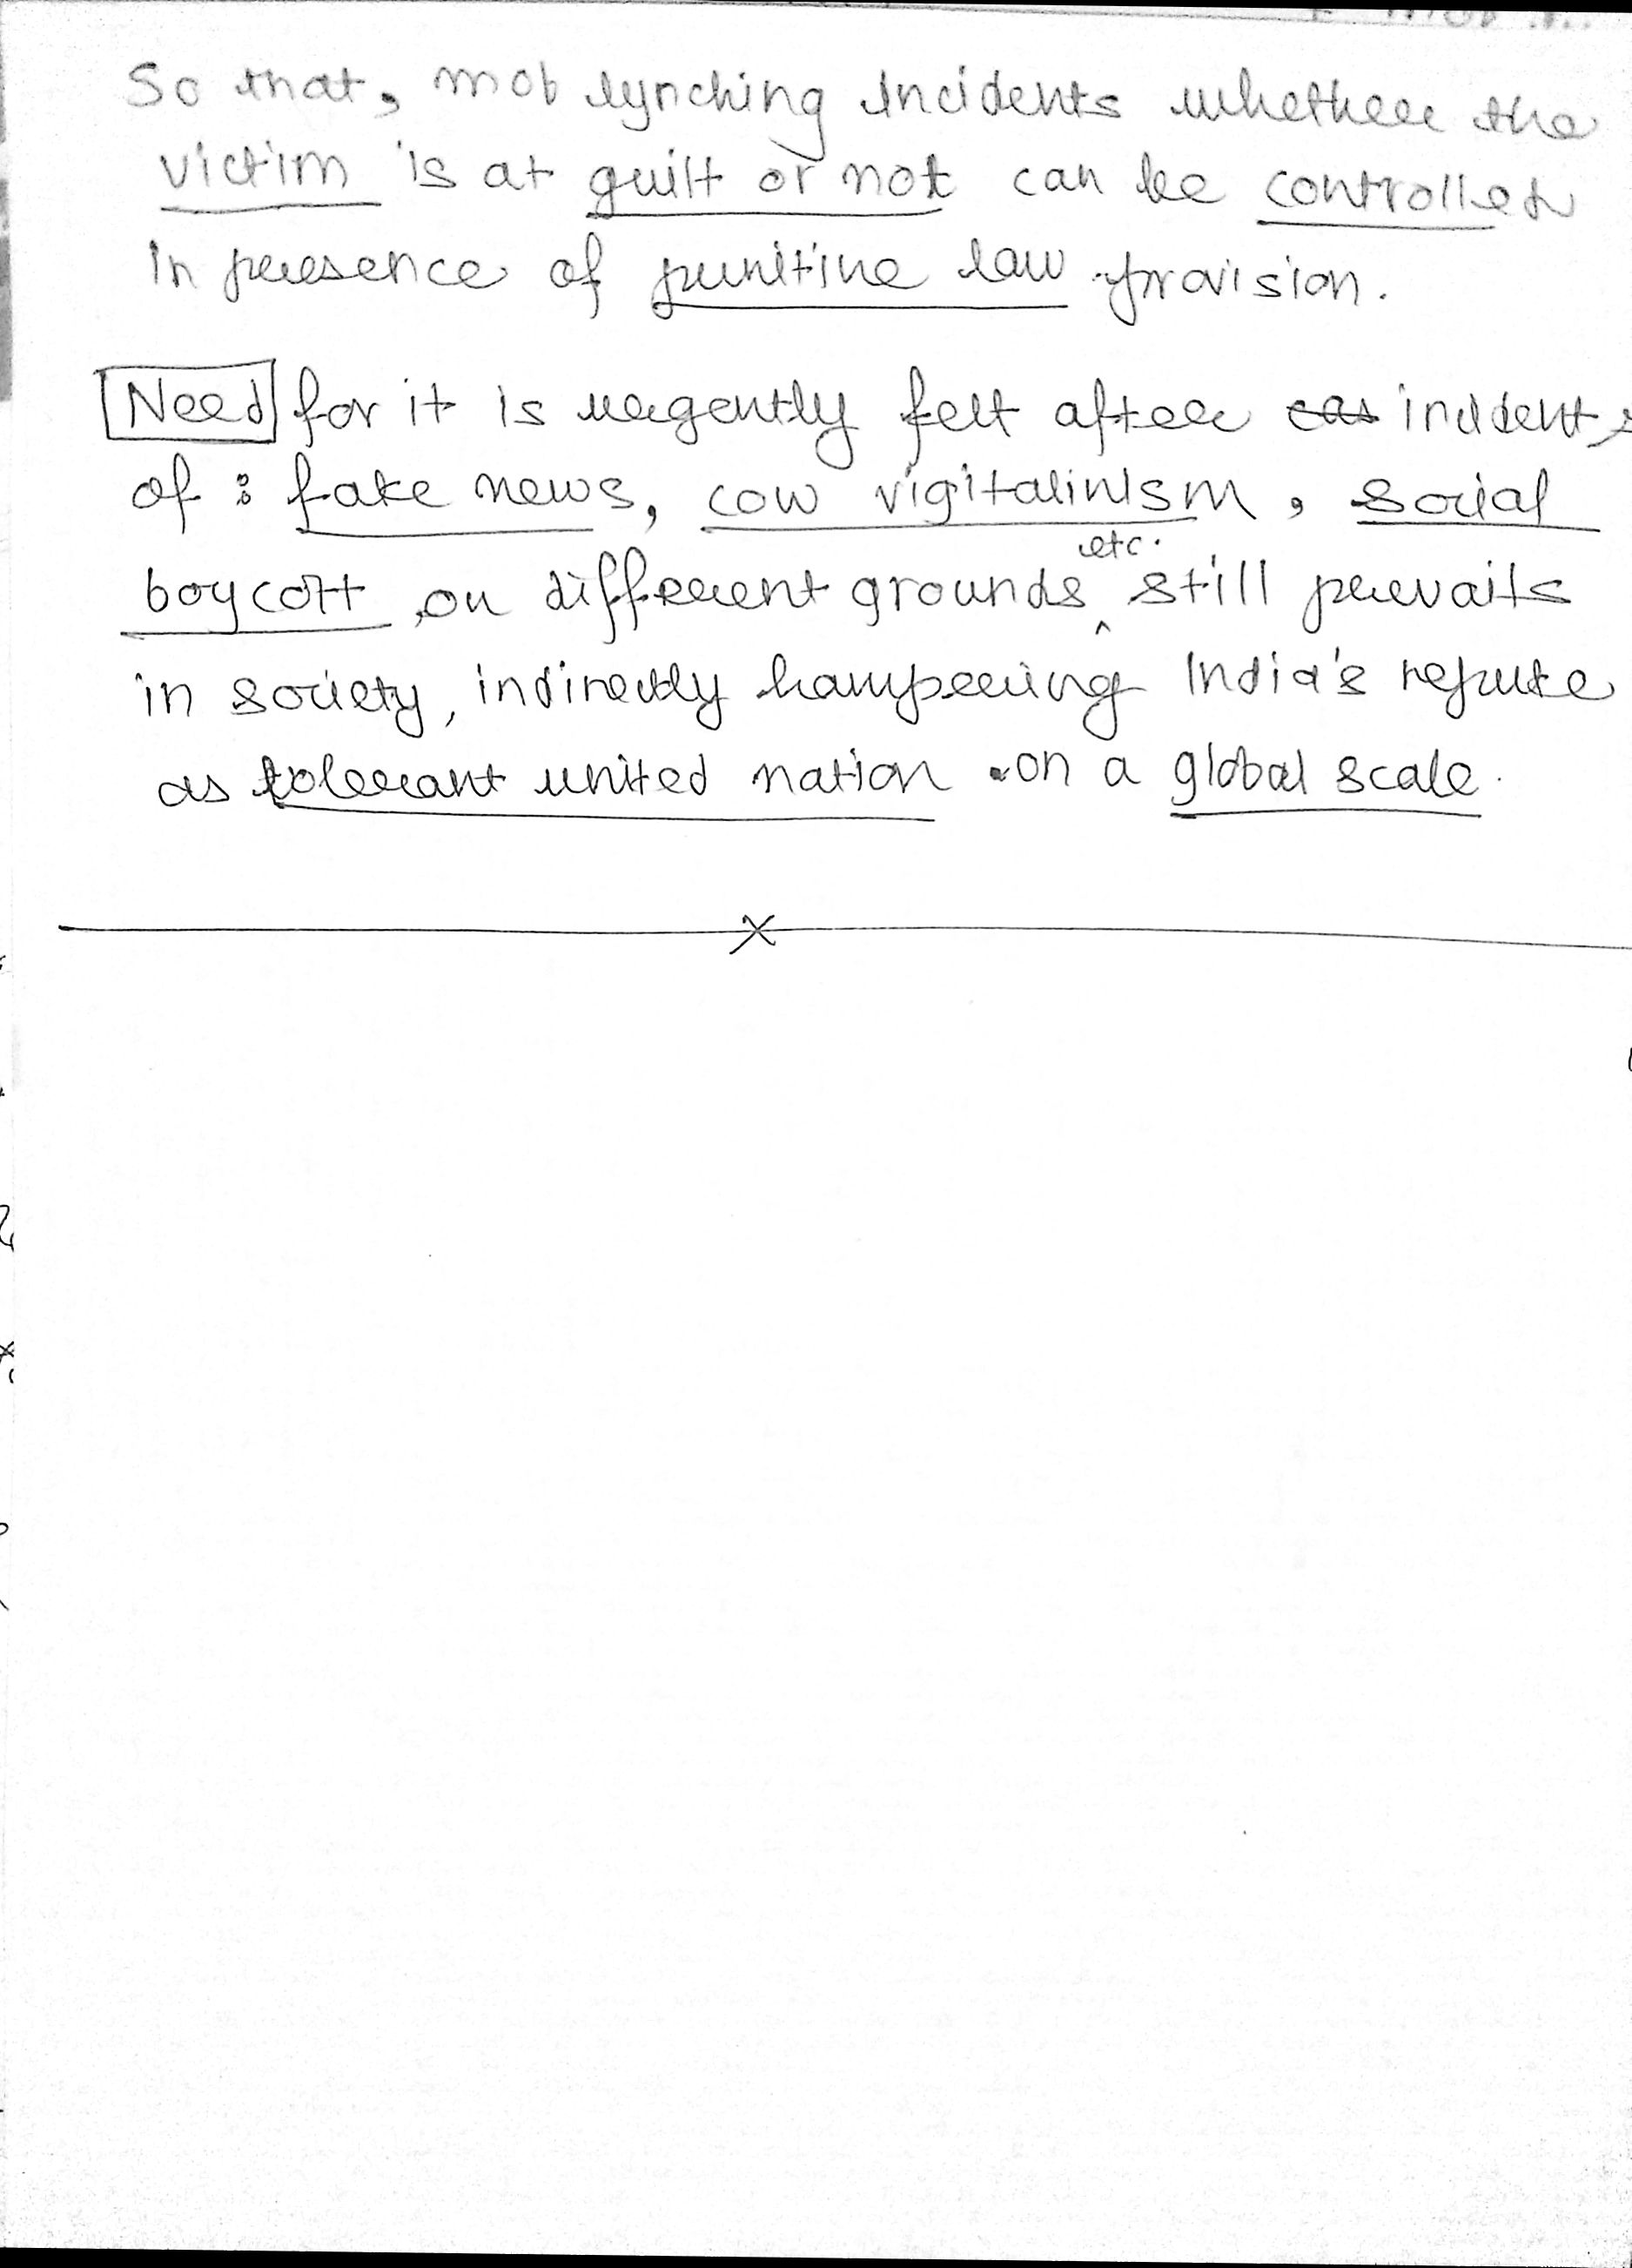 So that, mob lynching incidents whether the
victim is at guilt or not can be controlled
in presence of punitive law provision.
Need for it is urgently felt after cas incidents
of : fake news, cow vigitalinism, social
boycott on different grounds etc. still prevails
in society, indirectly hampering India's repute
as tolerant united nation on a global scale.